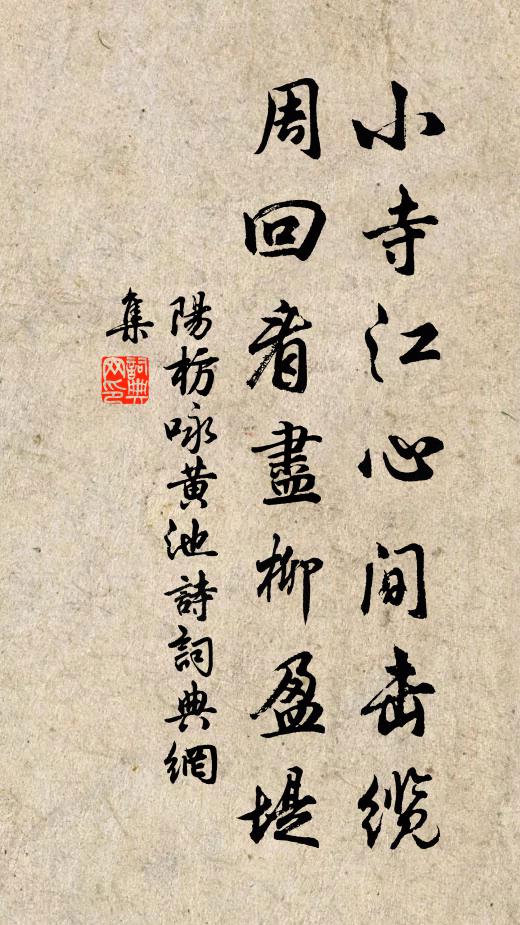 小寺江心间击缆
周回看盡柳盈堤
陽枋咏黄池詩詞典網
集
詞典
网印